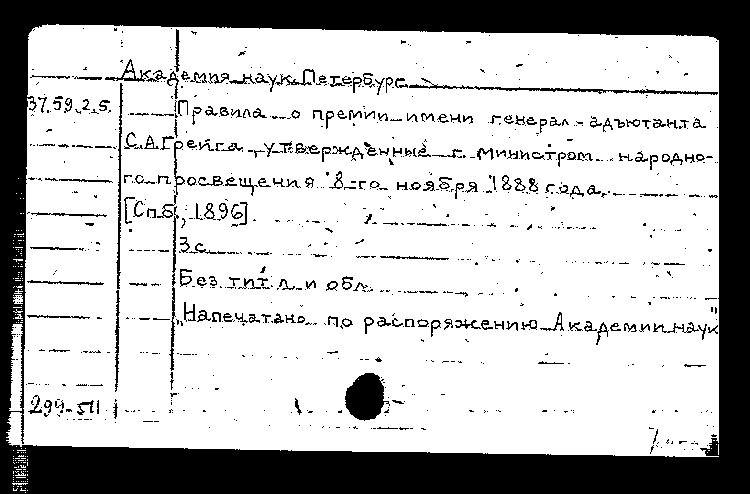 Академия наук. Петербург
37.59.2.5. Правила о премии имени генерал-адъютанта
С.А.Грейга, утвержденные г. министром народно-
го просвещения 8-го ноября 1888 года.
[Спб, 1896].
3 с.
Без тит. л. и обл.
"Напечатано по распоряжению Академии наук"
299-511